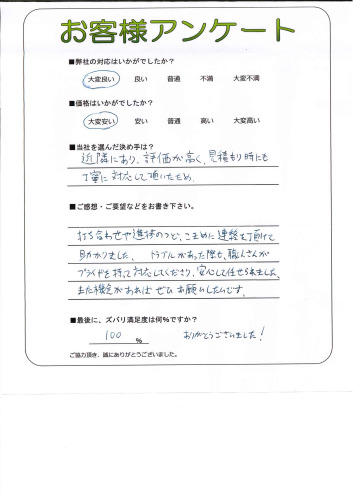 お客様アンケート
■弊社の対応はいかがでしたか？
大変良い 良い 普通 不満 大変不満
■価格はいかがでしたか？
大変安い 安い 普通 高い 大変高い
■当社を選んだ決め手は？
近隣にあり、評価が高く、見積もり時にも
丁寧に対応して頂いたため。
■ご感想・ご要望などをお書き下さい。
打ち合わせや進捗のつど、こまめに連絡を頂けて
助かりました。トラブルがあった際も、職人さんが
プライドを持って対応してくださり、安心して任せられました。
また機会があればぜひお願いしたいです。
■最後に、ズバリ満足度は何%ですか？
100 % ありがとうございました！
ご協力頂き、誠にありがとうございました。